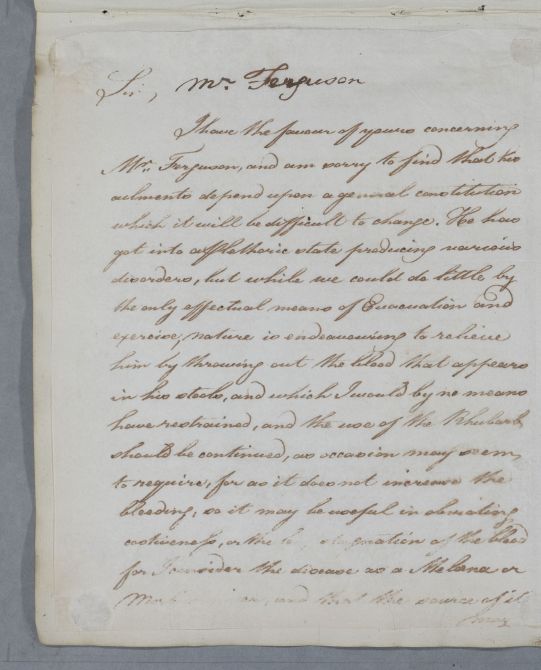 Sir, Mr. Ferguson
I have the favour of yours concerning
Mr. Ferguson, and am sorry to find that his
ailments depend upon a general constitution
which it will be difficult to change. He has
got into a Plethoric state producing various
disorders, but while we could do little by
the only effectual means of Evacuation and
exercise, nature is endeavouring to relieve
him by throwing out the blood that appears
in his stools, and which I would by no means
have restrained, and the use of the Rhubarb
should be continued, as occasion may seem
to require, for as it does not increase the
bleeding, so it may be useful in obviating
costiveness, or the stagnation of the blood
for I consider the disease as a Melana or
and that the source of it
may